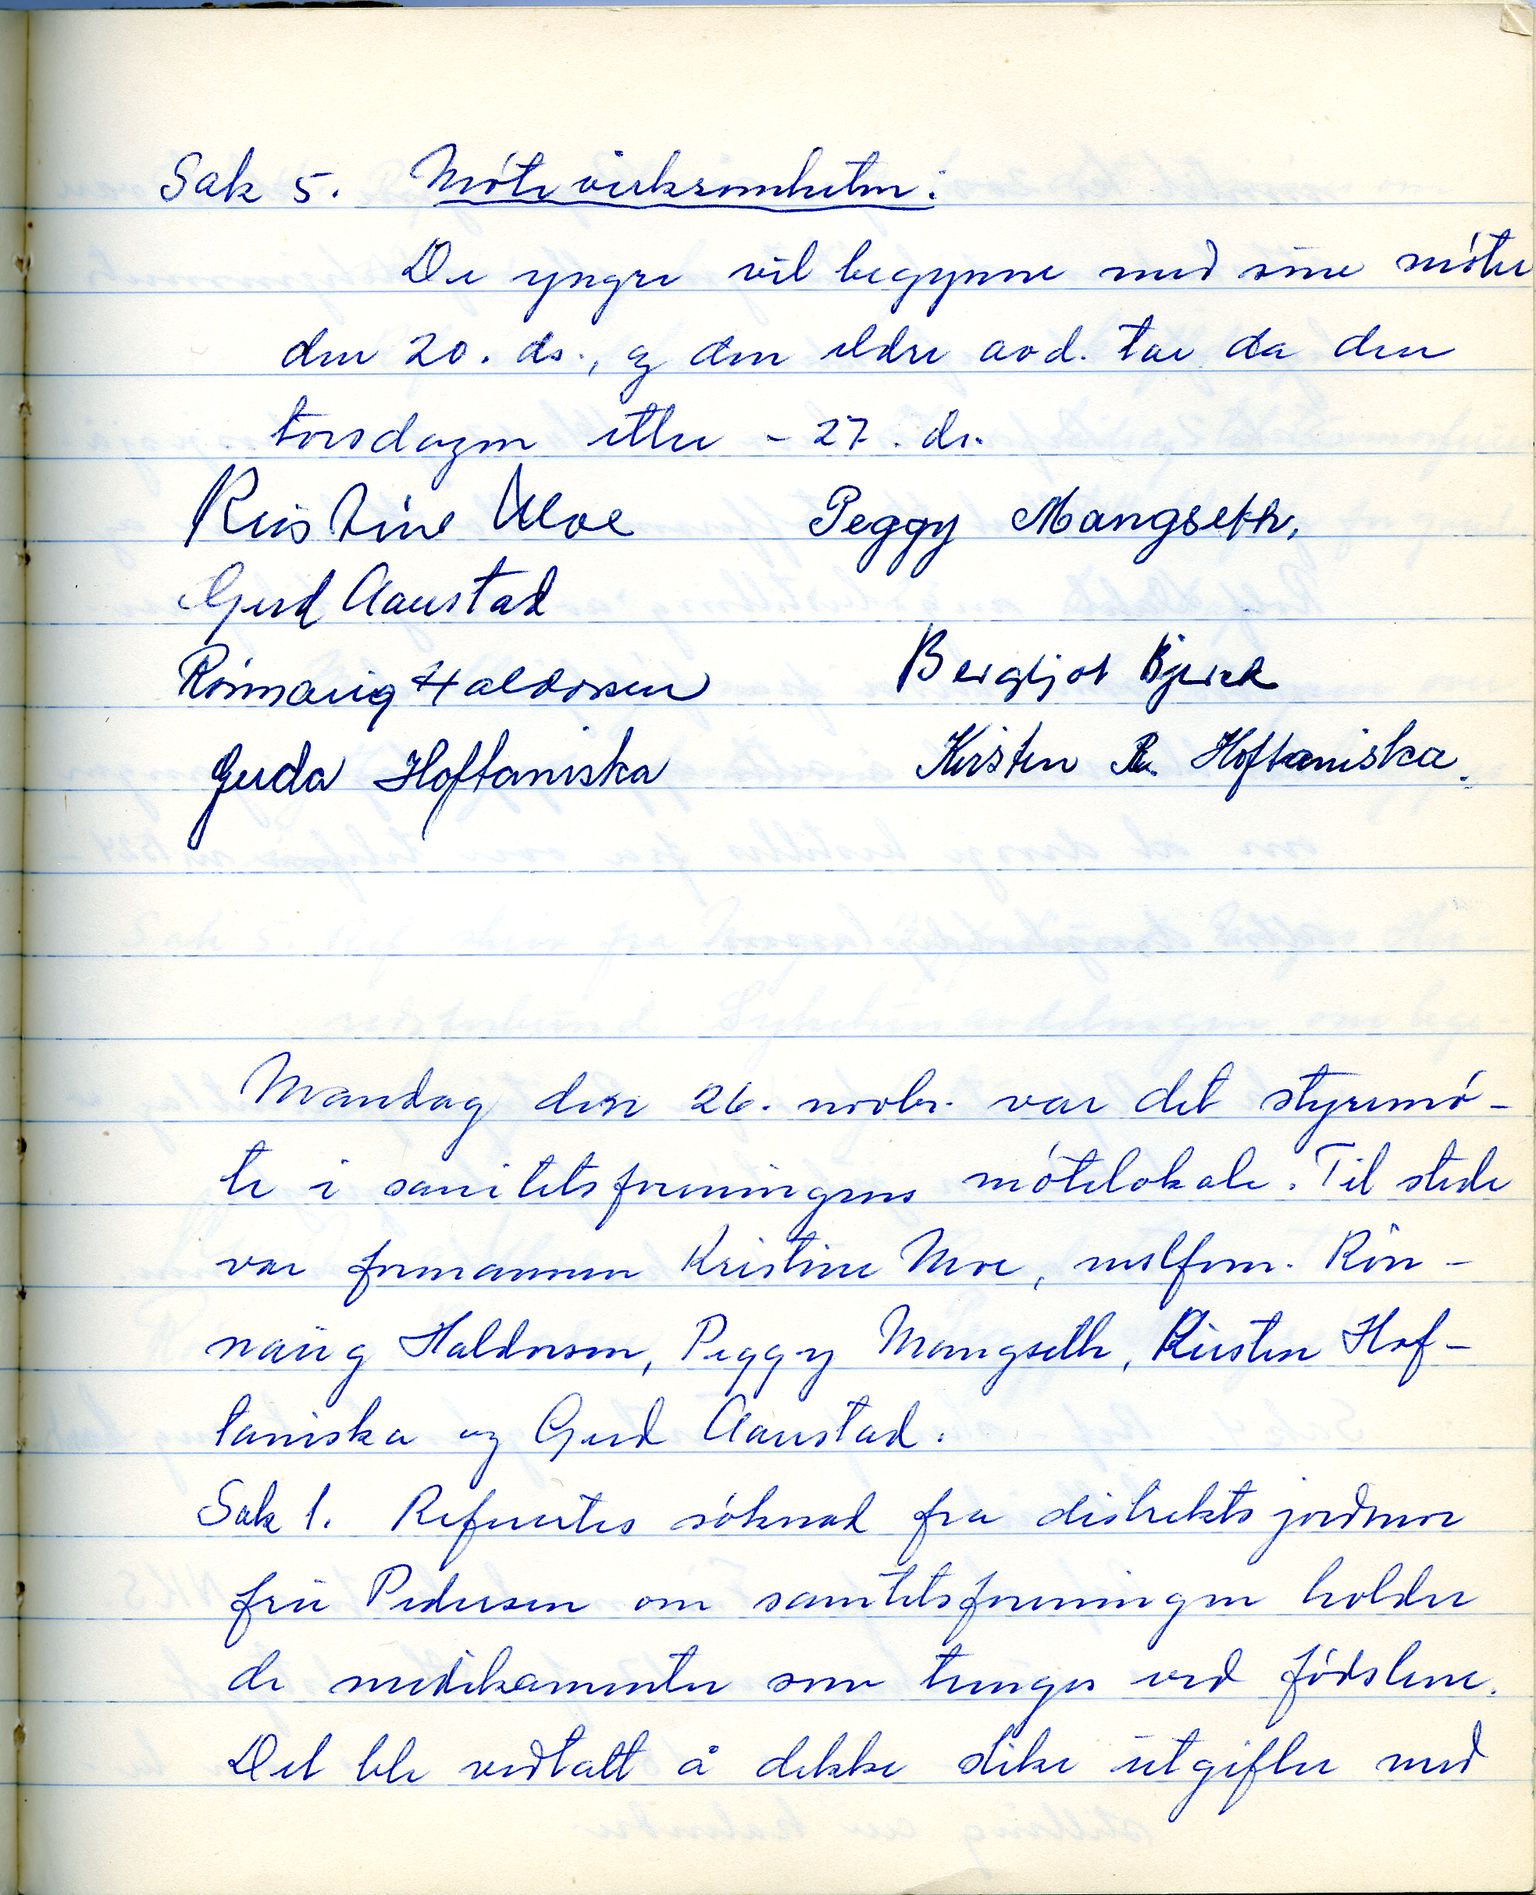 Sak 5. Møtevirksomheten:
De yngre vil begynne med sine møter
den 20. ds., og den eldre avd. tar da den
torsdagen etter - 27. ds.
Kristine Moe Peggy Mangseth,
Gerd Aaustad
Rønnaug Haldorsen Bergljot Bjerck
Gerda Hoftaniska Kirsten R. Hoftaniska.
Mandag den 26. novbr. var det styremø-
te i sanitetsforeningens møtelokale. Til stede
var formannen Kristine Moe, nestform. Røn-
naug Haldorsen, Peggy Mangseth, Kirsten Hof-
taniska og Gerd Aaustad.
Sak 1. Refertes søknad fra distriktsjordmor
fru Pedersen om sanitetsforeningen holder
de medikamenter som trenges ved fødslene.
Det ble vedtatt å dekke slike utgifter med